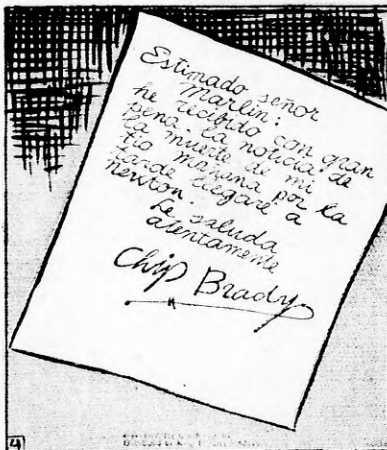 Estimado señor
Marlin:
he recibido con gran
pena la noticia de
la muerte de mi
tío mañana por la
tarde llegaré a
newton.
Le saluda
atentamente
Chip Brady
4